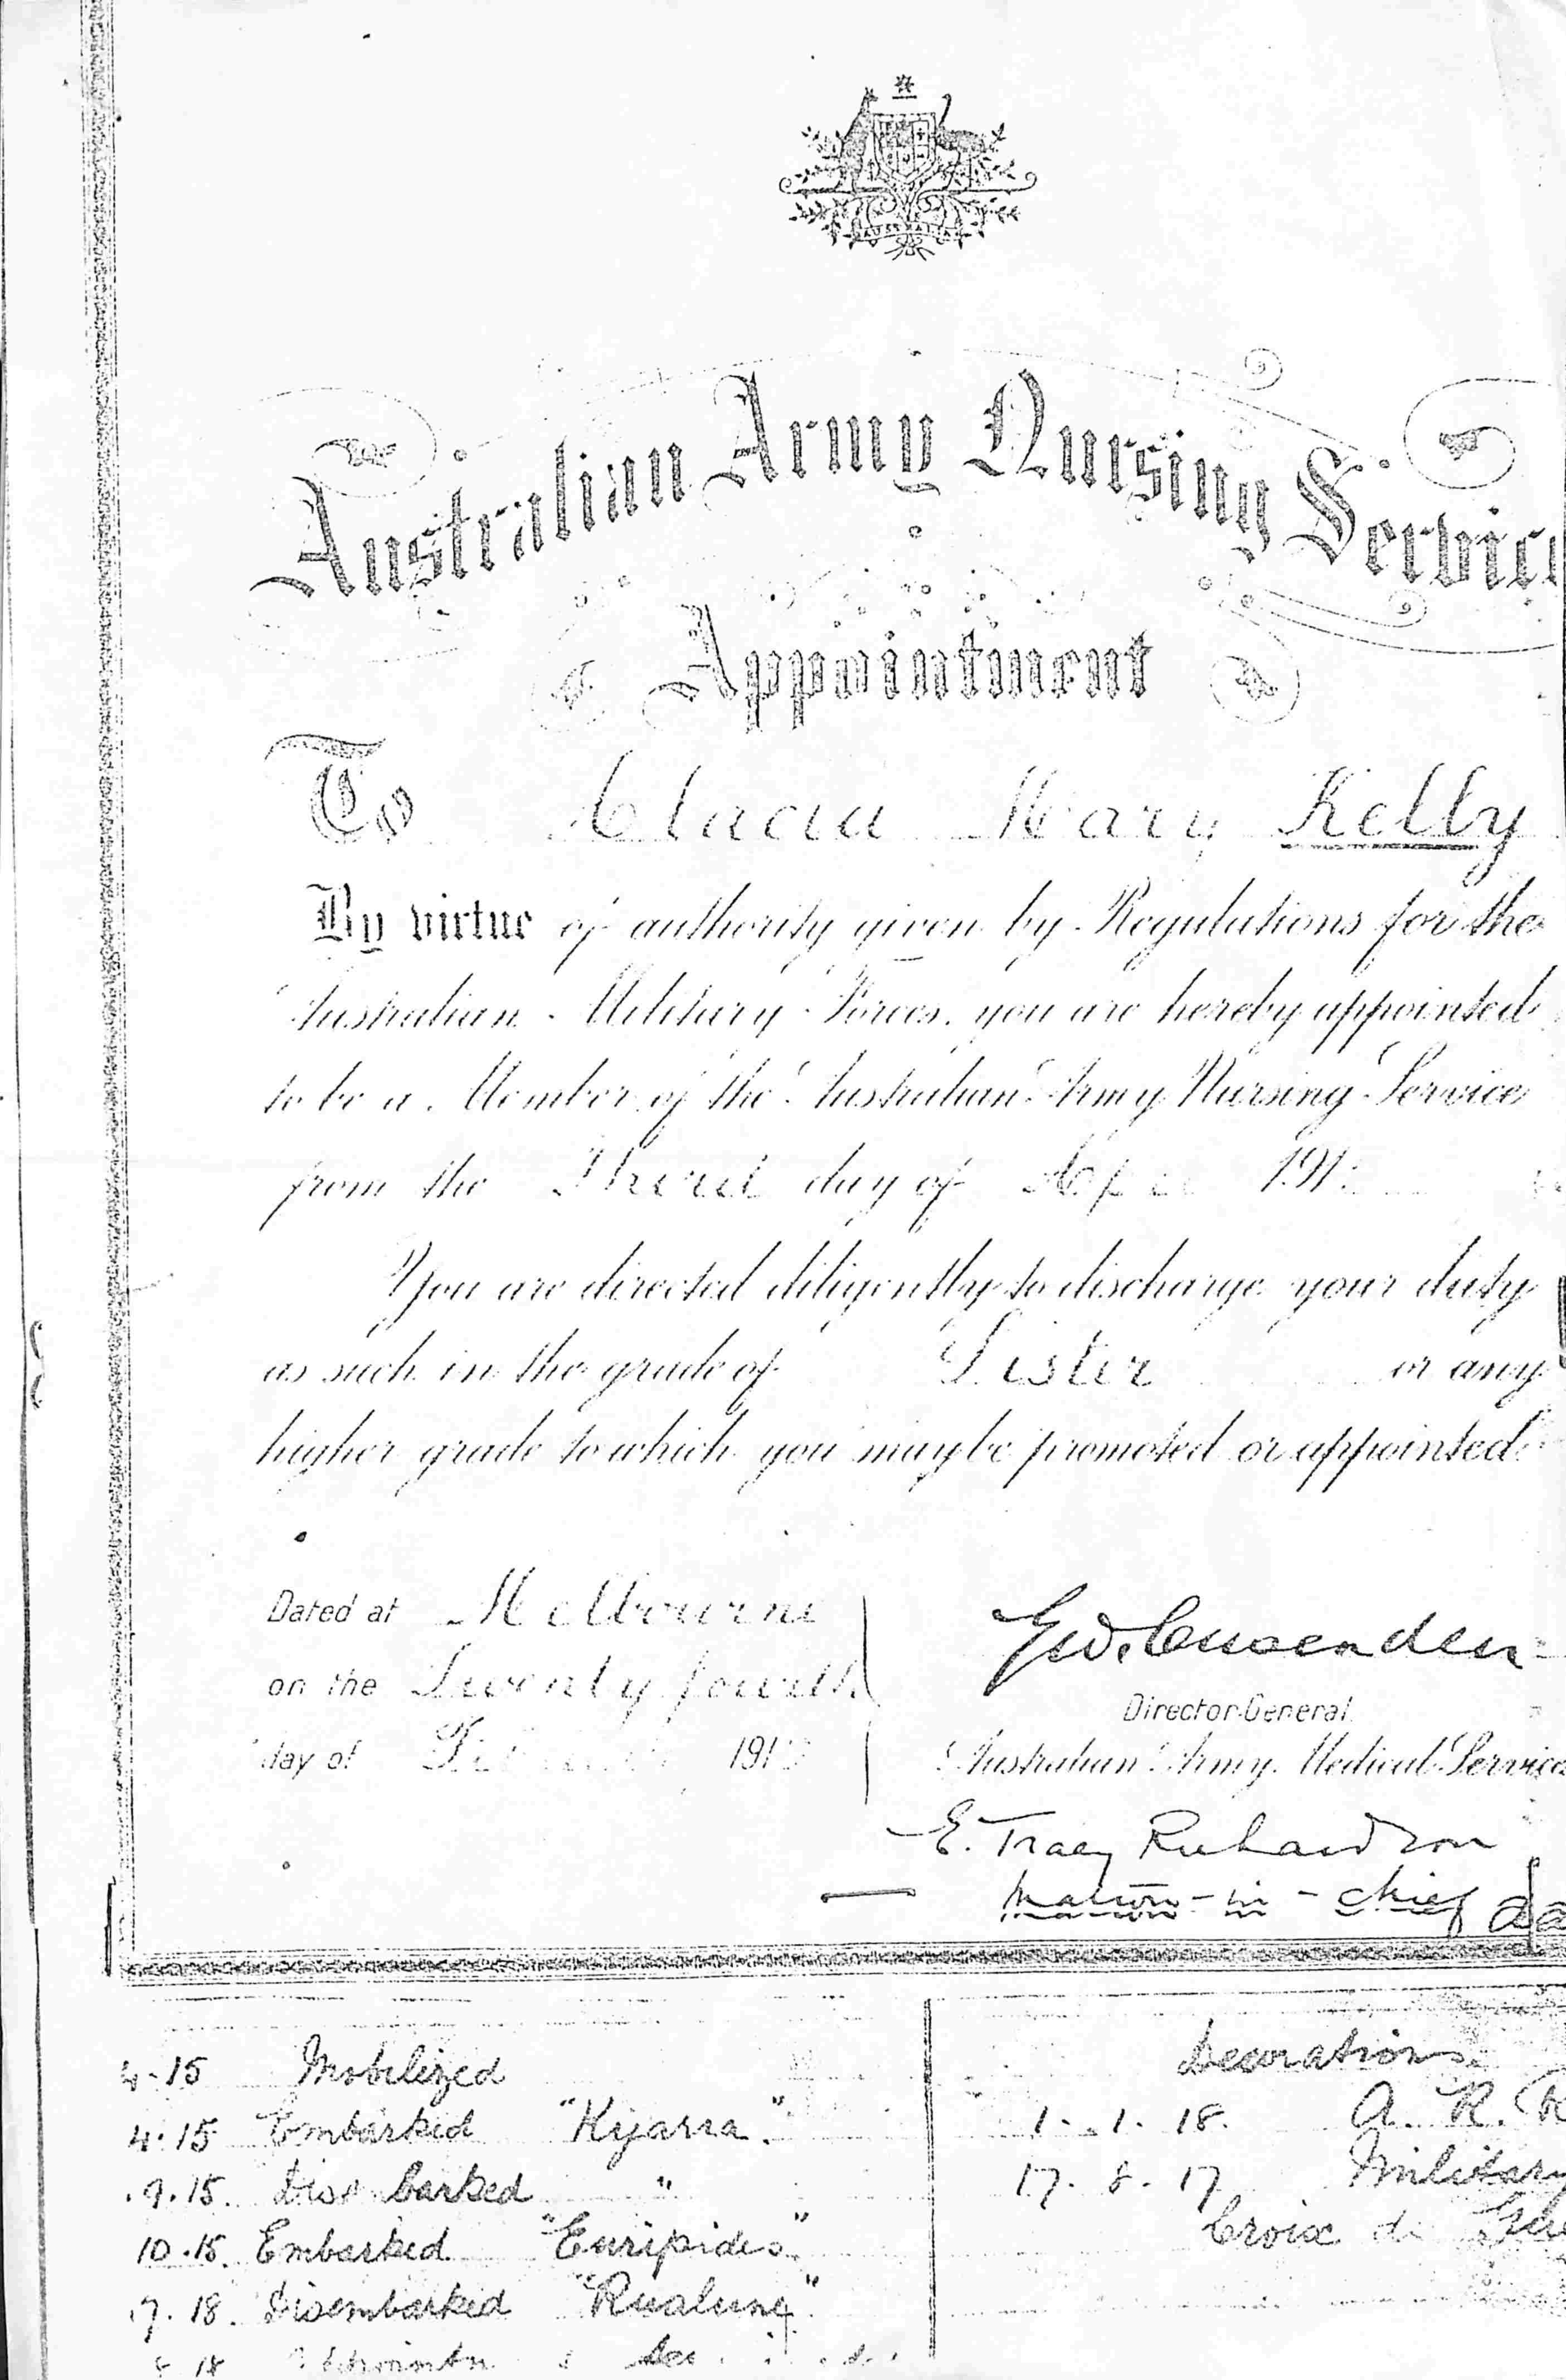 AUSTRALIA
Australian Army Nursing Service
Appointment
To Mary Kelly
By virtue of authority given by Regulations for the
Australian Military Forces, you are hereby appointed
to be a Member of the Australian Army Nursing Service
from the Third day of 191
You are directed diligently to discharge your duty
as such in the grade of Sister or any
higher grade to which you may be promoted or appointed.
Dated at Melbourne
on the Twenty fourth
day of 191
Director-General
Australian Army Medical Service
E. Tracy Richardson
Matron-in-chief
4-15 Mobilized
4.15 Embarked "Kyarra"
.9.15. Disembarked "
10.15. Embarked "Euripides"
.7.18. Disembarked
18
Decorations
1. 1. 18. A. R. R
17. 8. 17 Military
Croix de Gue